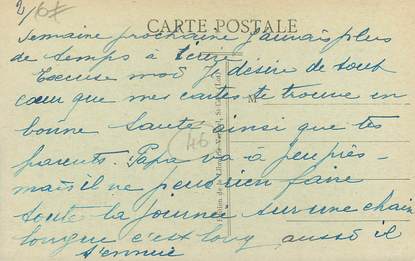 CARTE POSTALE
Semaine prochaine j'aurais plus
de temps à
Excuse moi Je désire de tout
cœur que mes cartes te trouve en
M
bonne santé ainsi que tes
46
parents. Papa va à peu près
mais il ne peut rien faire
toute la journée sur une chaise
longue c'est long aussi il
s'ennuie